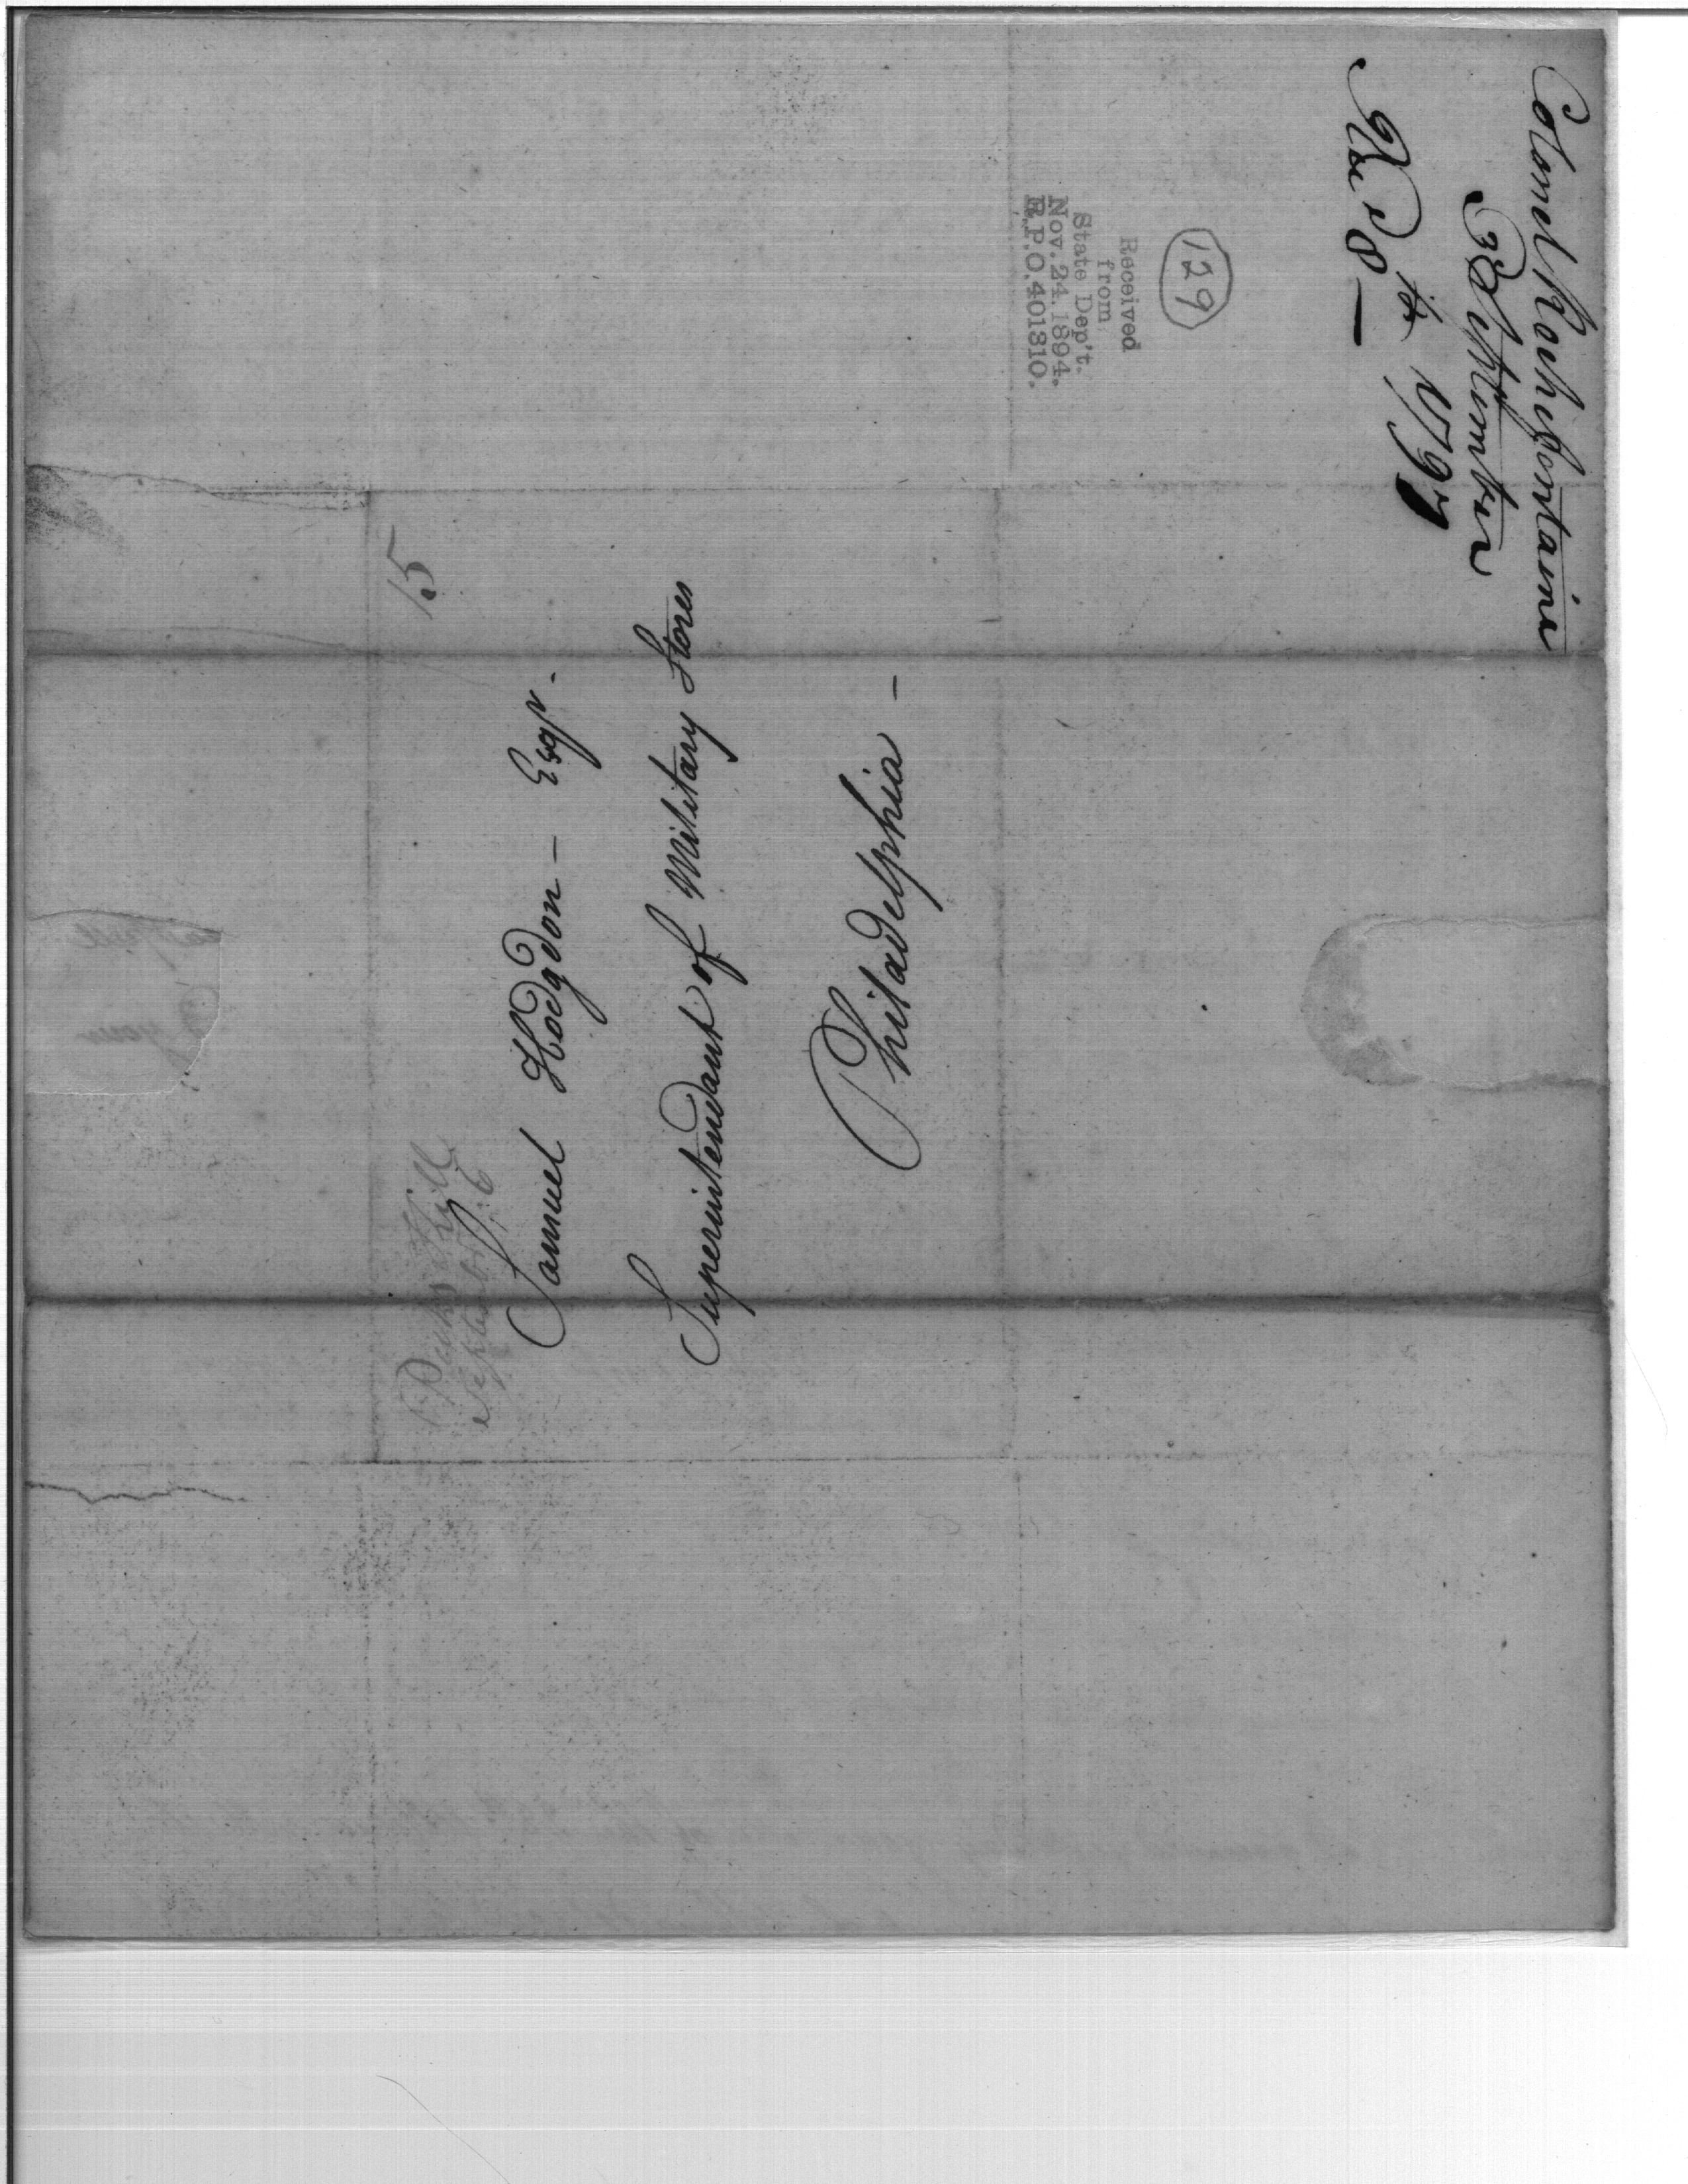 Colonel Rochefontaine
3d September
1797
Rec'd 8th —
129
Received
from
State Dep't.
Nov. 24. 1894.
R.P.O. 401310.
15
Peeks Kill
Septembr 6
Samuel Hodgdon — Esqr. -
Superintendant of Military Stores
Philadelphia —
your